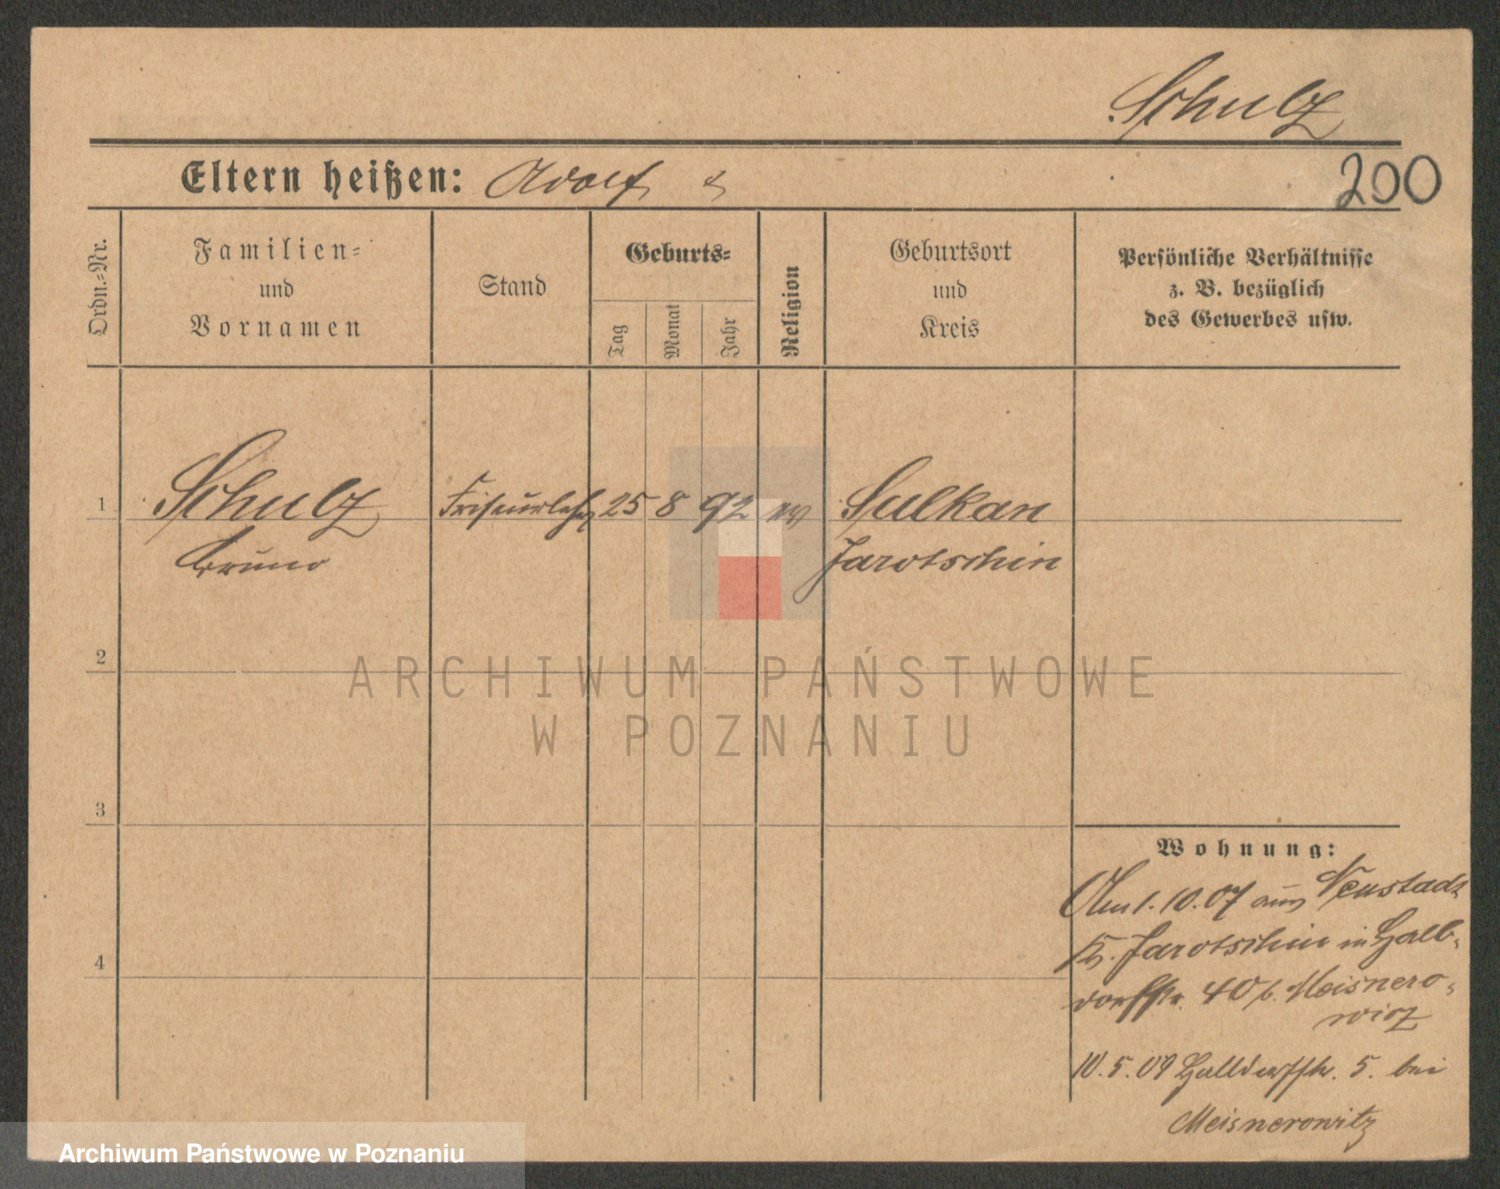 Schulz
Eltern heißen: Adolf
200
Ordn.-Nr.
Familien-
und
Vornamen
Stand
Geburts-
Tag
Monat
Jahr
Religion
Geburtsort
und
Kreis
Persönliche Verhältnisse
z. B. bezüglich
des Gewerbes usw.
1
Schulz
Bruno
Friseurlehrl
25
8
92
ev
Sulkan
Jarotschin
2
ARCHIWUM PAŃSTWOWE
W POZNANIU
3
4
Wohnung:
Am 1. 10. 07 aus Neustadt
Kr. Jarotschin in Halb-
dorfstr. 40 b. Meisnero-
wicz
10. 5. 09 Halbdorfstr. 5. bei
Meisnerowitz
Archiwum Państwowe w Poznaniu